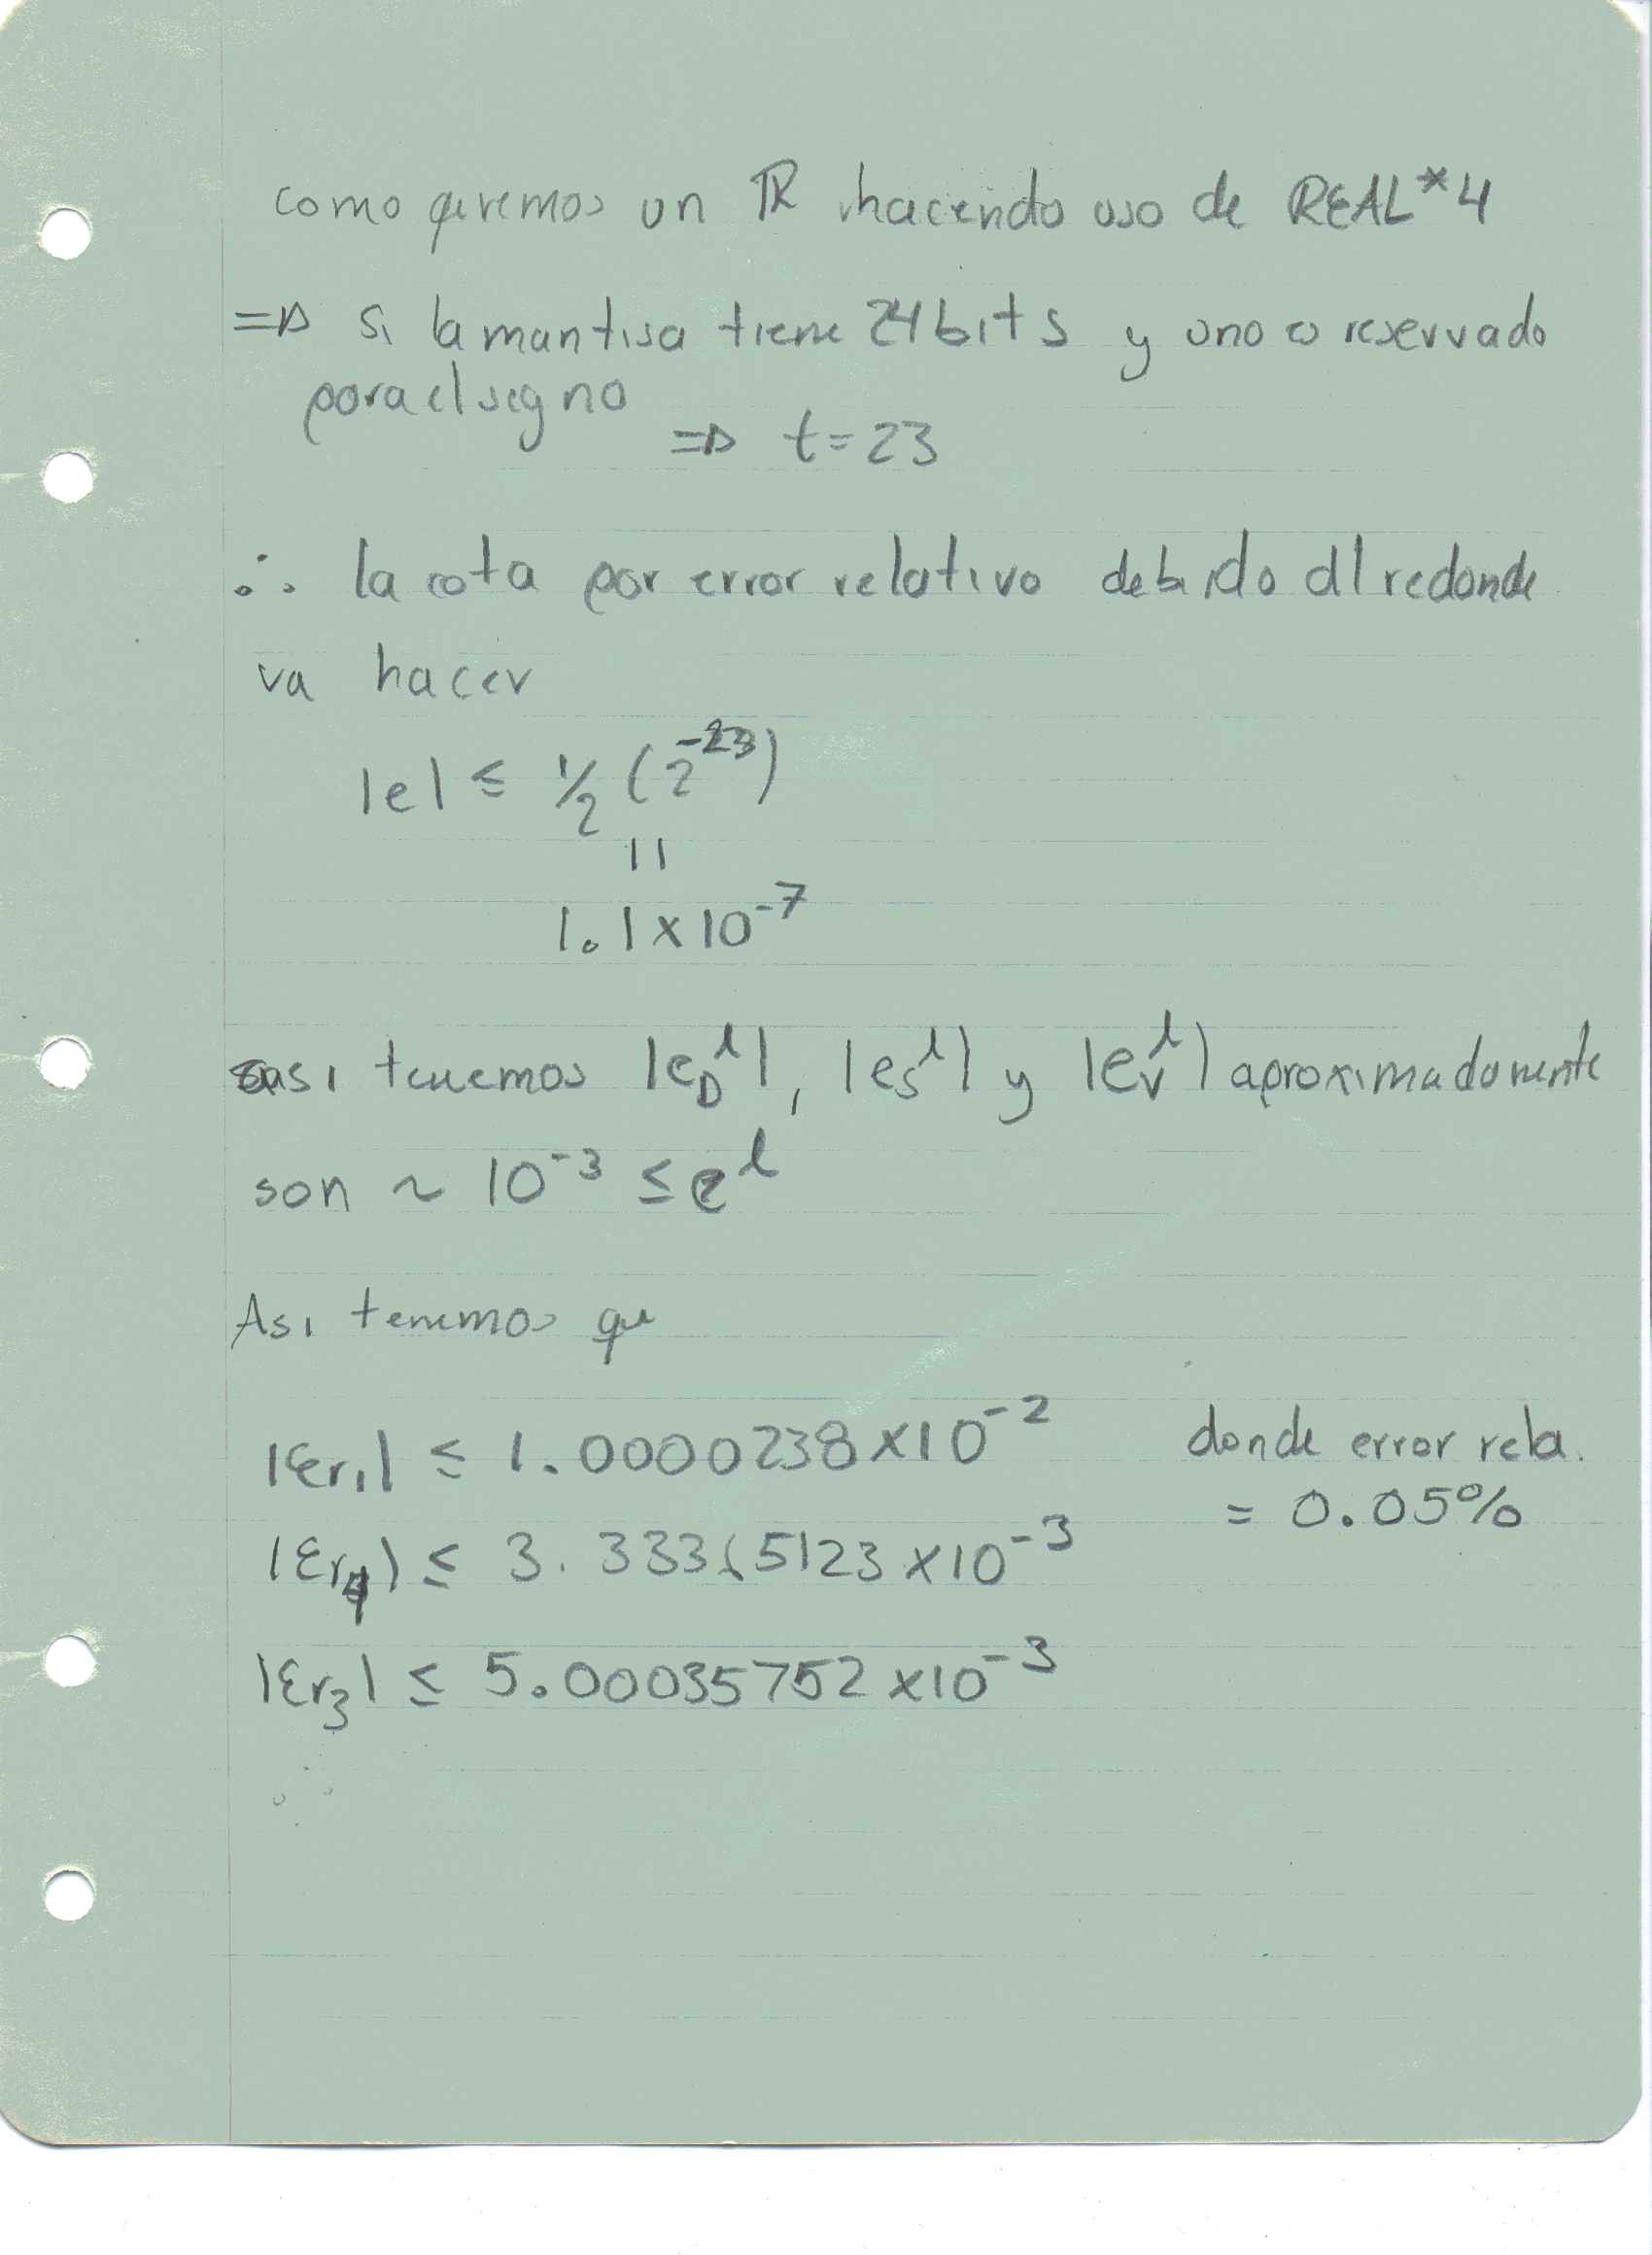 como qeremos un ℝ hacendo uso de REAL*4
=> Si la mantisa tiene 24 bits y uno es reservado
para el signo
=> t=23
∴ la cota por error relativo debido al redonde
va hacer
|e| ≤ 1/2 (2^-23)
||
1.1×10^-7
asi tenemos |e_D^l|, |e_S^l| y |e_V^l| aproximadamente
son ~ 10^-3 ≤ e^l
Asi tenemos qe
|εr₁| ≤ 1.0000238×10^-2 donde error rela.
= 0.05%
|εr| ≤ 3.333 5123×10^-3
|εr₃| ≤ 5.00035752×10^-3